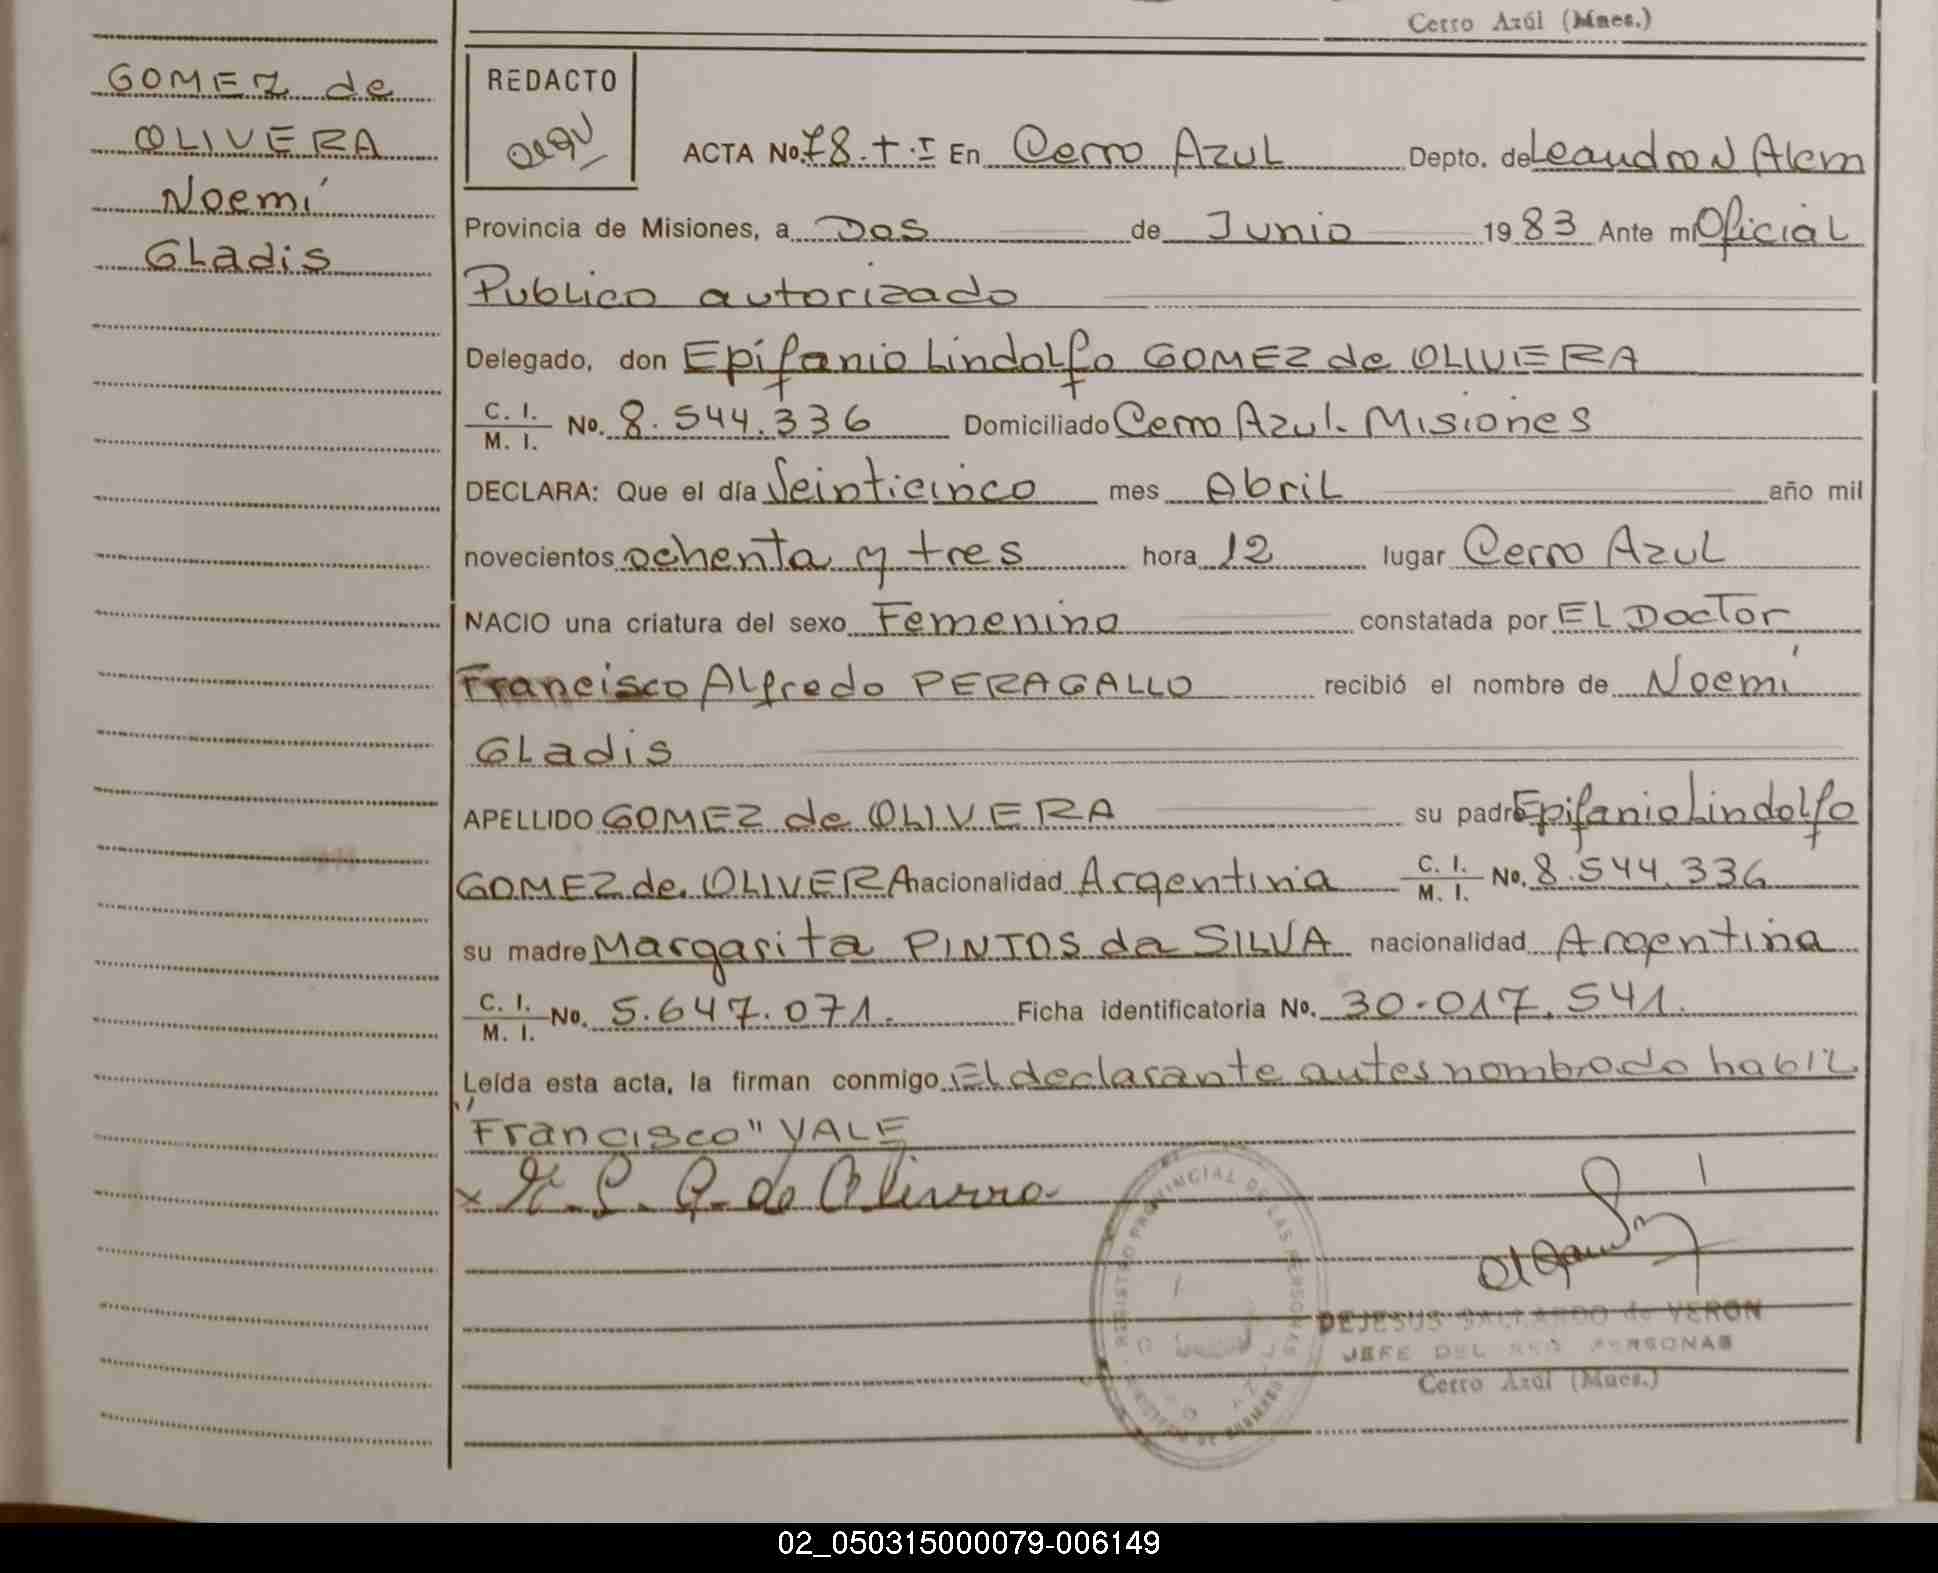 Cerro Azúl (Mnes.)
GOMEZ de
OLIVERA
Noemí
Gladis
REDACTO
ACTA No. 78. T. I En Cerro Azul Depto. de Leandro N Alem
Provincia de Misiones, a Dos de Junio 1983 Ante mi Oficial
Publico autorizado
Delegado, don Epifanio Lindolfo GOMEZ de OLIVERA
C. I. / M. I. No. 8.544.336 Domiciliado Cerro Azul. Misiones
DECLARA: Que el día Veinticinco mes Abril año mil
novecientos ochenta y tres hora 12 lugar Cerro Azul
NACIO una criatura del sexo Femenino constatada por El Doctor
Francisco Alfredo PERAGALLO recibió el nombre de Noemí
Gladis
APELLIDO GOMEZ de OLIVERA su padre Epifanio Lindolfo
GOMEZ de OLIVERA nacionalidad Argentina C. I. / M. I. No. 8.544.336
su madre Margarita PINTOS da SILVA nacionalidad Argentina
C. I. / M. I. No. 5.647.071. Ficha identificatoria No. 30.017.541.
Leída esta acta, la firman conmigo El declarante antes nombrado habil
"Francisco" VALE
x E. L. G. de Olivera
REGISTRO PROVINCIAL DE LAS PERSONAS
DEJESUS GALLARDO de VERON
JEFE DEL REG PERSONAS
Cerro Azúl (Mnes.)
02_050315000079-006149